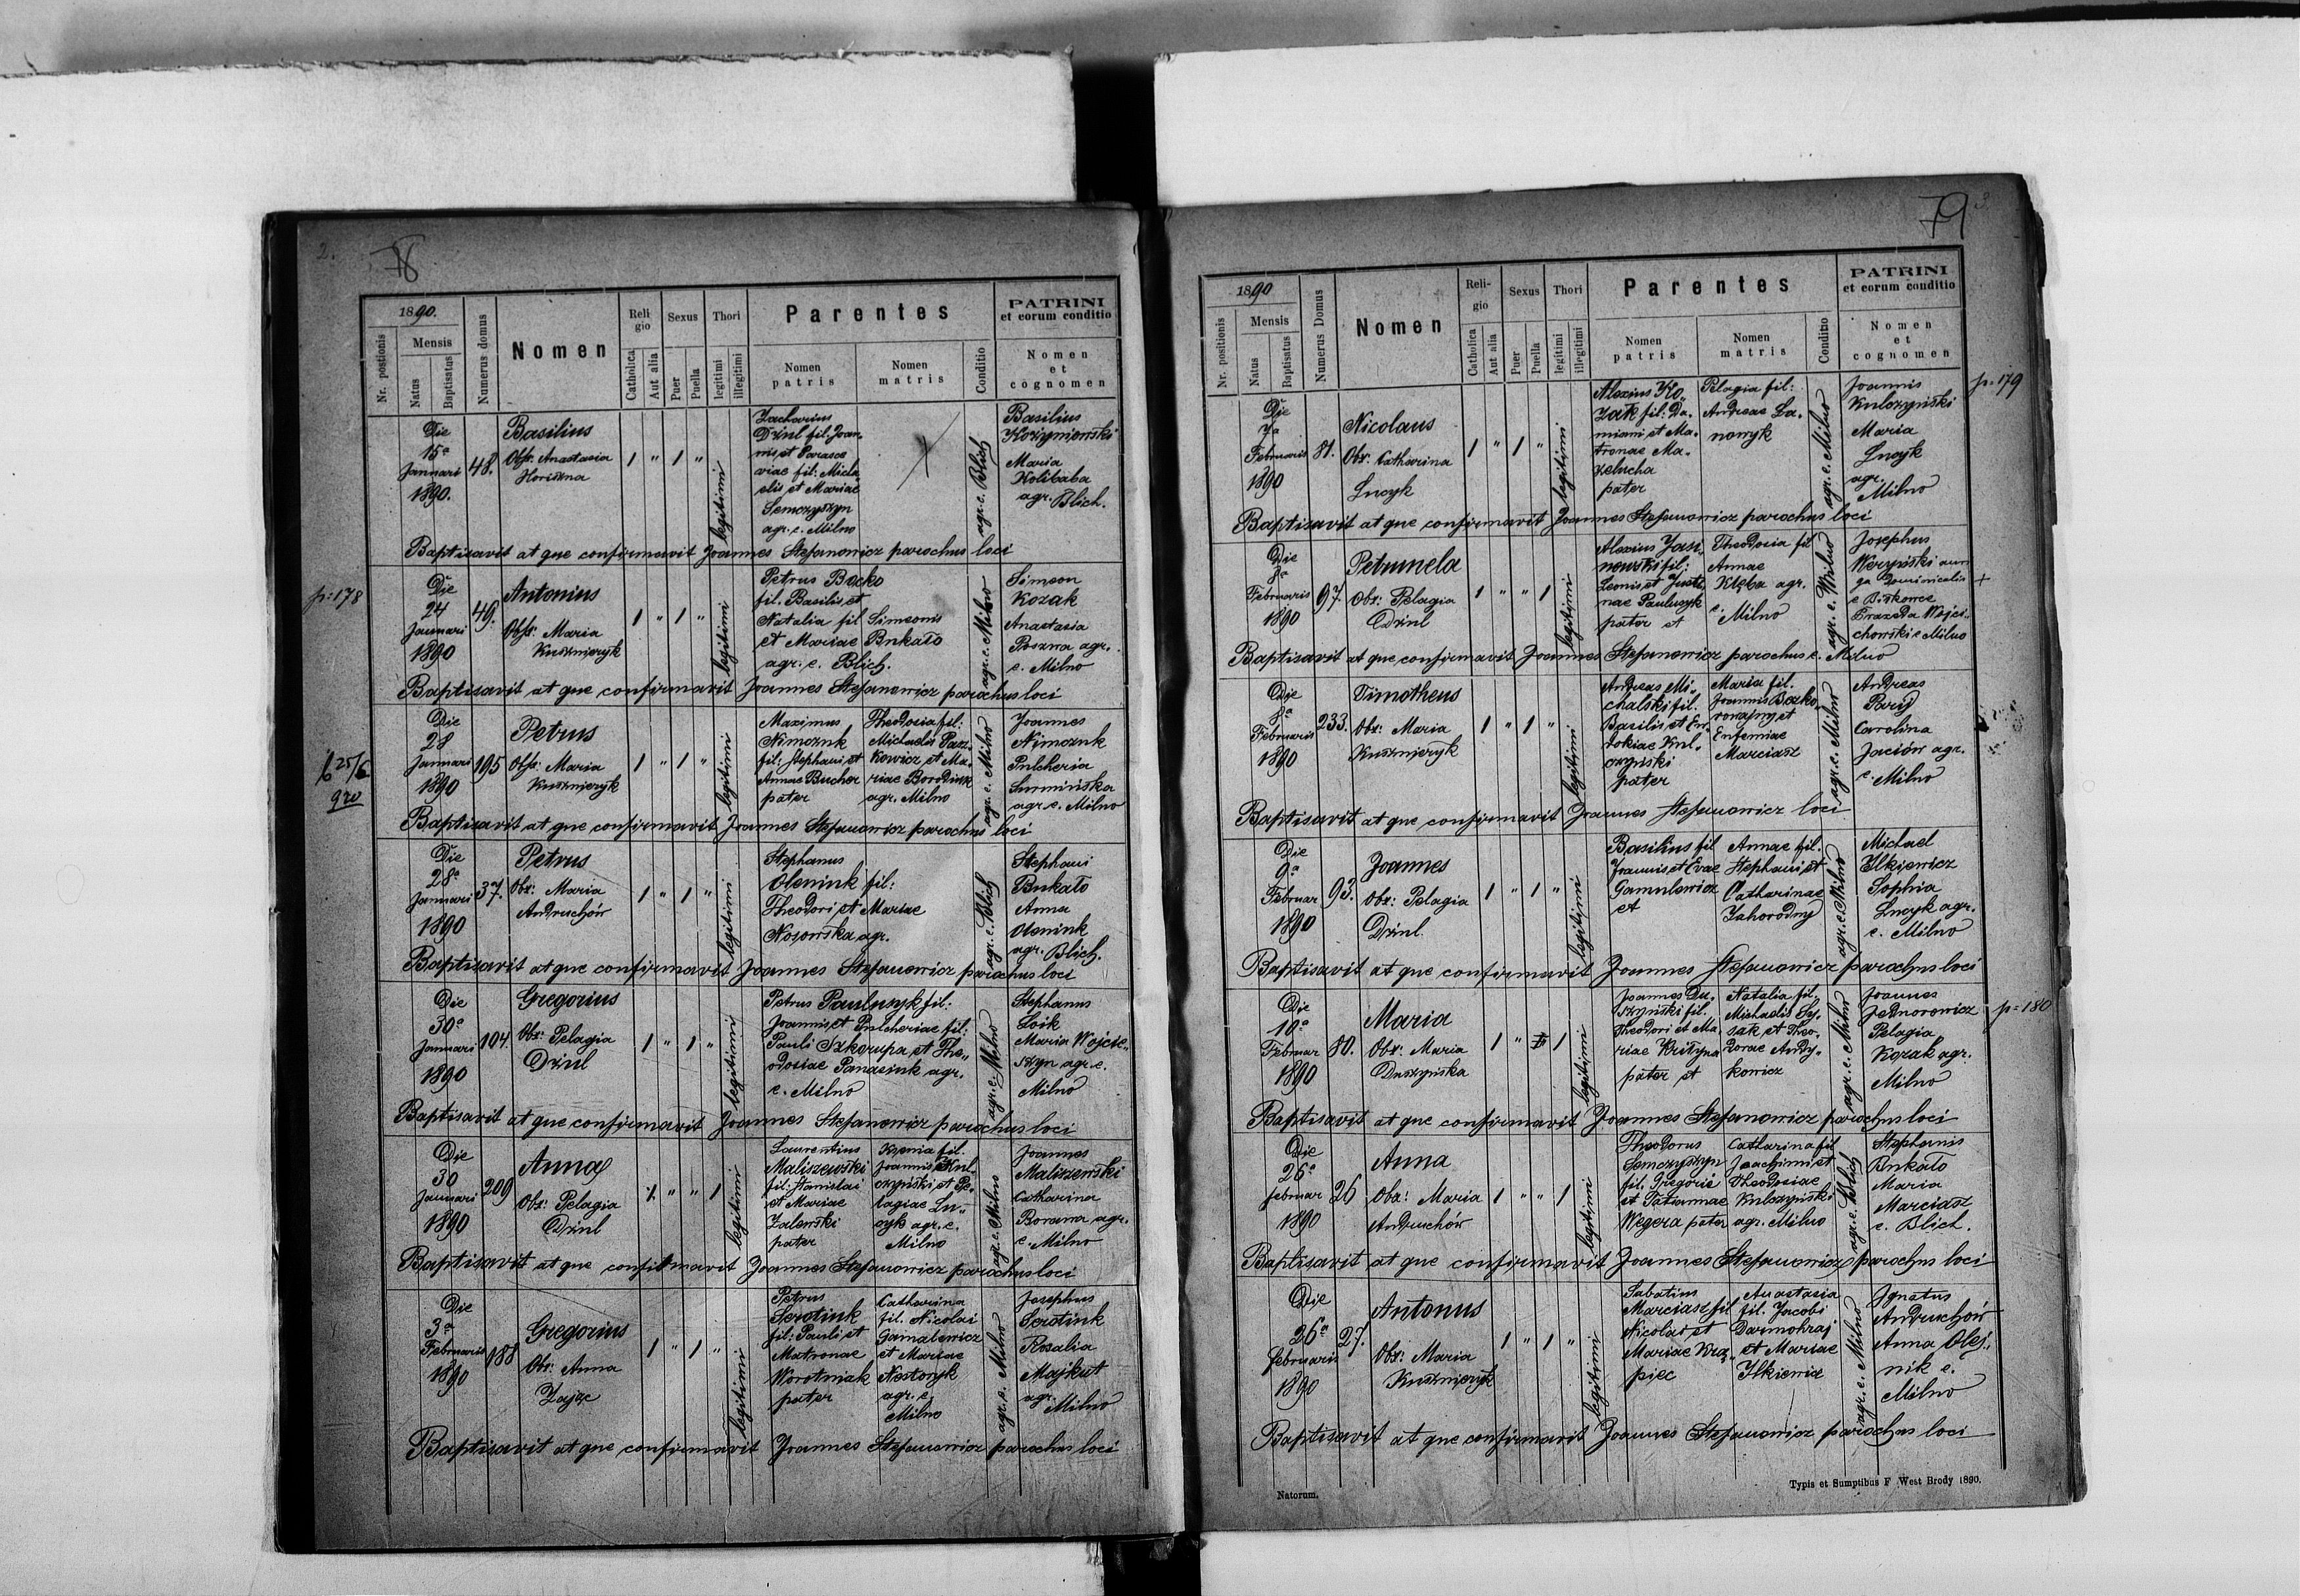 2.
78
1890.
Nr. postionis
Mensis
Natus
Baptisatus
Numerus domus
Nomen
Reli
gio
Catholica
Aut alia
Sexus
Puer
Puella
Thori
legitimi
illegitimi
Parentes
Nomen
patris
Nomen
matris
Conditio
PATRINI
et eorum conditio
Nomen
et
cognomen
Die
15a
Januari
1890.
48.
Basilius
Obst. Anastasia
Horiszna
1 " 1 "
legitimi
Zacharius
Dziul fil. Joan-
nis et Parasce
viae fil: Micha
elis et Mariae
Semczyszyn
agr. e. Milno
agr. e. Blich
Basilius
Maria
Kolibaba
agr. Blich.
Baptisavit at que confirmavit Joannes Stefanowicz parochus loci
p: 178
Die
24
Januari
1890
49.
Antonius
Obst: Maria
Kusznieryk
1 " 1 "
legitimi
Petrus Bocko
fil. Basilis et
Natalia fil Simeonis
et Mariae Bukato
agr. e. Blich.
agr. e. Milno
Simeon
Kozak
Anastasia
agr.
e. Milno
Baptisavit at que confirmavit Joannes Stefanowicz parochus loci
Die
28
Januari
1890
195
Petrus
Obst: Maria
Kusznieryk
1 " 1 "
legitimi
Maximus
Nimczuk
fil: Stephani et
Annae Bucher
pater
Theodosia fil:
Michaelis Paz-
kowicz et Ma-
riae Borodiuk
agr. Milno
agr. e. Milno
Joannes
Nimczuk
Pulcheria
Surmińska
agr. e. Milno
Baptisavit at que confirmavit Joannes Stefanowicz parochus loci
Die
28a
Januari
1890
37.
Petrus
Obs: Maria
Andruchów
1 " 1 "
legitimi
Stephanus
Oleniuk fil:
Theodori et Mariae
Nosowska agr.
agr. e. Blich
Stephani
Bukato
Anna
Oleniuk
agr. Blich.
Baptisavit at que confirmavit Joannes Stefanowicz parochus loci
Die
30a
Januari
1890
104.
Gregorius
Obs: Pelagia
Dziul
1 " 1 "
legitimi
Petrus Pauluzyk fil:
Joannis et Pulcheriae fil:
Pauli Szkorupa et The-
odosiae Panasiuk agr.
e. Milno
agr. e. Milno
Stephanus
Loik
Maria Wojcie-
szyn agr. e.
Milno
Baptisavit at que confirmavit Joannes Stefanowicz parochus loci
Die
30
Januari
1890
209
Anna
Obs: Pelagia
Dziul
1 " " 1
legitimi
Laurentius
Maliszewski
fil: Stanislai
et Mariae
Zalewski
pater
Ksenia fil.
Joannis Kul-
czyński et Pe-
lagiae Lu-
cyk agr. e.
Milno
agr. e. Milno
Joannes
Maliszewski
Catharina
agr.
e. Milno
Baptisavit at que confirmavit Joannes Stefanowicz parochus loci
Die
3a
Februaris
1890
188
Gregorius
Obs: Anna
Zajac
1 " 1 "
legitimi
Petrus
Serotiuk
fil: Pauli et
Matronae
Worotniak
pater
Catharina
fil. Nicolai
Gamalewicz
et Mariae
Nestoryk
agr. e.
Milno
agr. e. Milno
Josephus
Serotiuk
Rosalia
Majkut
agr.
Milno
Baptisavit at que confirmavit Joannes Stefanowicz parochus loci
79
3
1890
Nr. positionis
Mensis
Natus
Baptisatus
Numerus Domus
Nomen
Reli-
gio
Catholica
Aut alia
Sexus
Puer
Puella
Thori
legitimi
illegitimi
Parentes
Nomen
patris
Nomen
matris
Conditio
PATRINI
et eorum conditio
Nomen
et
cognomen
p: 179
Die
7a
Februaris
1890
81.
Nicolaus
Obs: Catharina
Lucyk
1 " 1 "
legitimi
Alexius Ko-
zak fil: Da-
miani et Ma-
tronae Ma-
zelucha
pater
Pelagia fil:
Andreae Ła-
nowyk
agr. e. Milno
Joannis
Kulczyński
Maria
Lucyk
agr.
Milno
Baptisavit at que confirmavit Joannes Stefanowicz parochus loci
Die
Februaris
1890
97.
Petrunela
Obs: Pelagia
Dziul
1 " " 1
legitimi
Alexius Jasi-
nowski fil:
Leonis et Justi
nae Pauluzyk
pater et
Theodosia fil
Annae
Klęba agr.
e. Milno
agr. e. Milno
Josephus
Werzyński auri
ga Dominicalis
Wojci-
chowski e Milno
Baptisavit at que confirmavit Joannes Stefanowicz parochus e. Milno
Die
Februaris
1890
233.
Timotheus
Obs: Maria
Kusznieryk
1 " 1 "
legitimi
Andreas Mi-
chalski fil.
Basilis et Eu-
dokiae Kul-
czyński
pater
Maria fil.
Joannis Bozko
et
Eufemiae
Marciasz
agr. e. Milno
Andreas
Carolina
Jaciów agr.
e. Milno
Baptisavit at que confirmavit Joannes Stefanowicz loci
Die
9a
Februar
1890
93.
Joannes
Obs: Pelagia
Dziul.
1 " 1 "
legitimi
Basilius fil
Joannis et Evae
Gamulewicz
et
Annae fil.
Stephani et
Catharinae
Zahorodny
agr. e. Milno
Michael
Ilkiewicz
Sophia
Lucyk agr.
e. Milno
Baptisavit at que confirmavit Joannes Stefanowicz parochus loci
p= 180
Die
10a
Februar
1890
80.
Maria
Obs: Maria
Duszyńska
1 " 1
legitimi
Joannes Du-
szyński fil.
Theodori et Ma
riae
pater et
Natalia fil-
Michaelis Sy-
sak et Theo-
dorae Andy-
kowicz
agr. e. Milno
Joannes
Jednorowicz
Pelagia
Kozak agr.
Milno
Baptisavit at que confirmavit Joannes Stefanowicz parochus loci
Die
26a
Februar
1890
26
Anna
Obs: Maria
Andruchów
1 " " 1
legitimi
Theodorus
Semczyszyn
fil. Gregorie
et Tatiannae
Wegera pater
Catharina fil
Joachimi et
Theodosiae
Kulczyński
agr. Milno
agr. e. Blich
Stephanis
Bukato
Maria
Marciasz
e. Blich.
Baptisavit at que confirmavit Joannes Stefanowicz parochus loci
Die
26a
Februaris
1890
27.
Antonus
Obs: Maria
Kusznieryk
1 " 1 "
legitimi
Sabatius
Marciasz fil
Nicolai et
Mariae Krę-
piec
Anastasia
fil. Jacobi
Darmohraj
et Mariae
Ilkiewicz
agr. e. Milno
Ignatus
Andruchów
Anna Olej-
nik e.
Milno
Baptisavit at que confirmavit Joannes Stefanowicz parochus loci
Natorum.
Typis et Sumptibus F West Brody 1890.